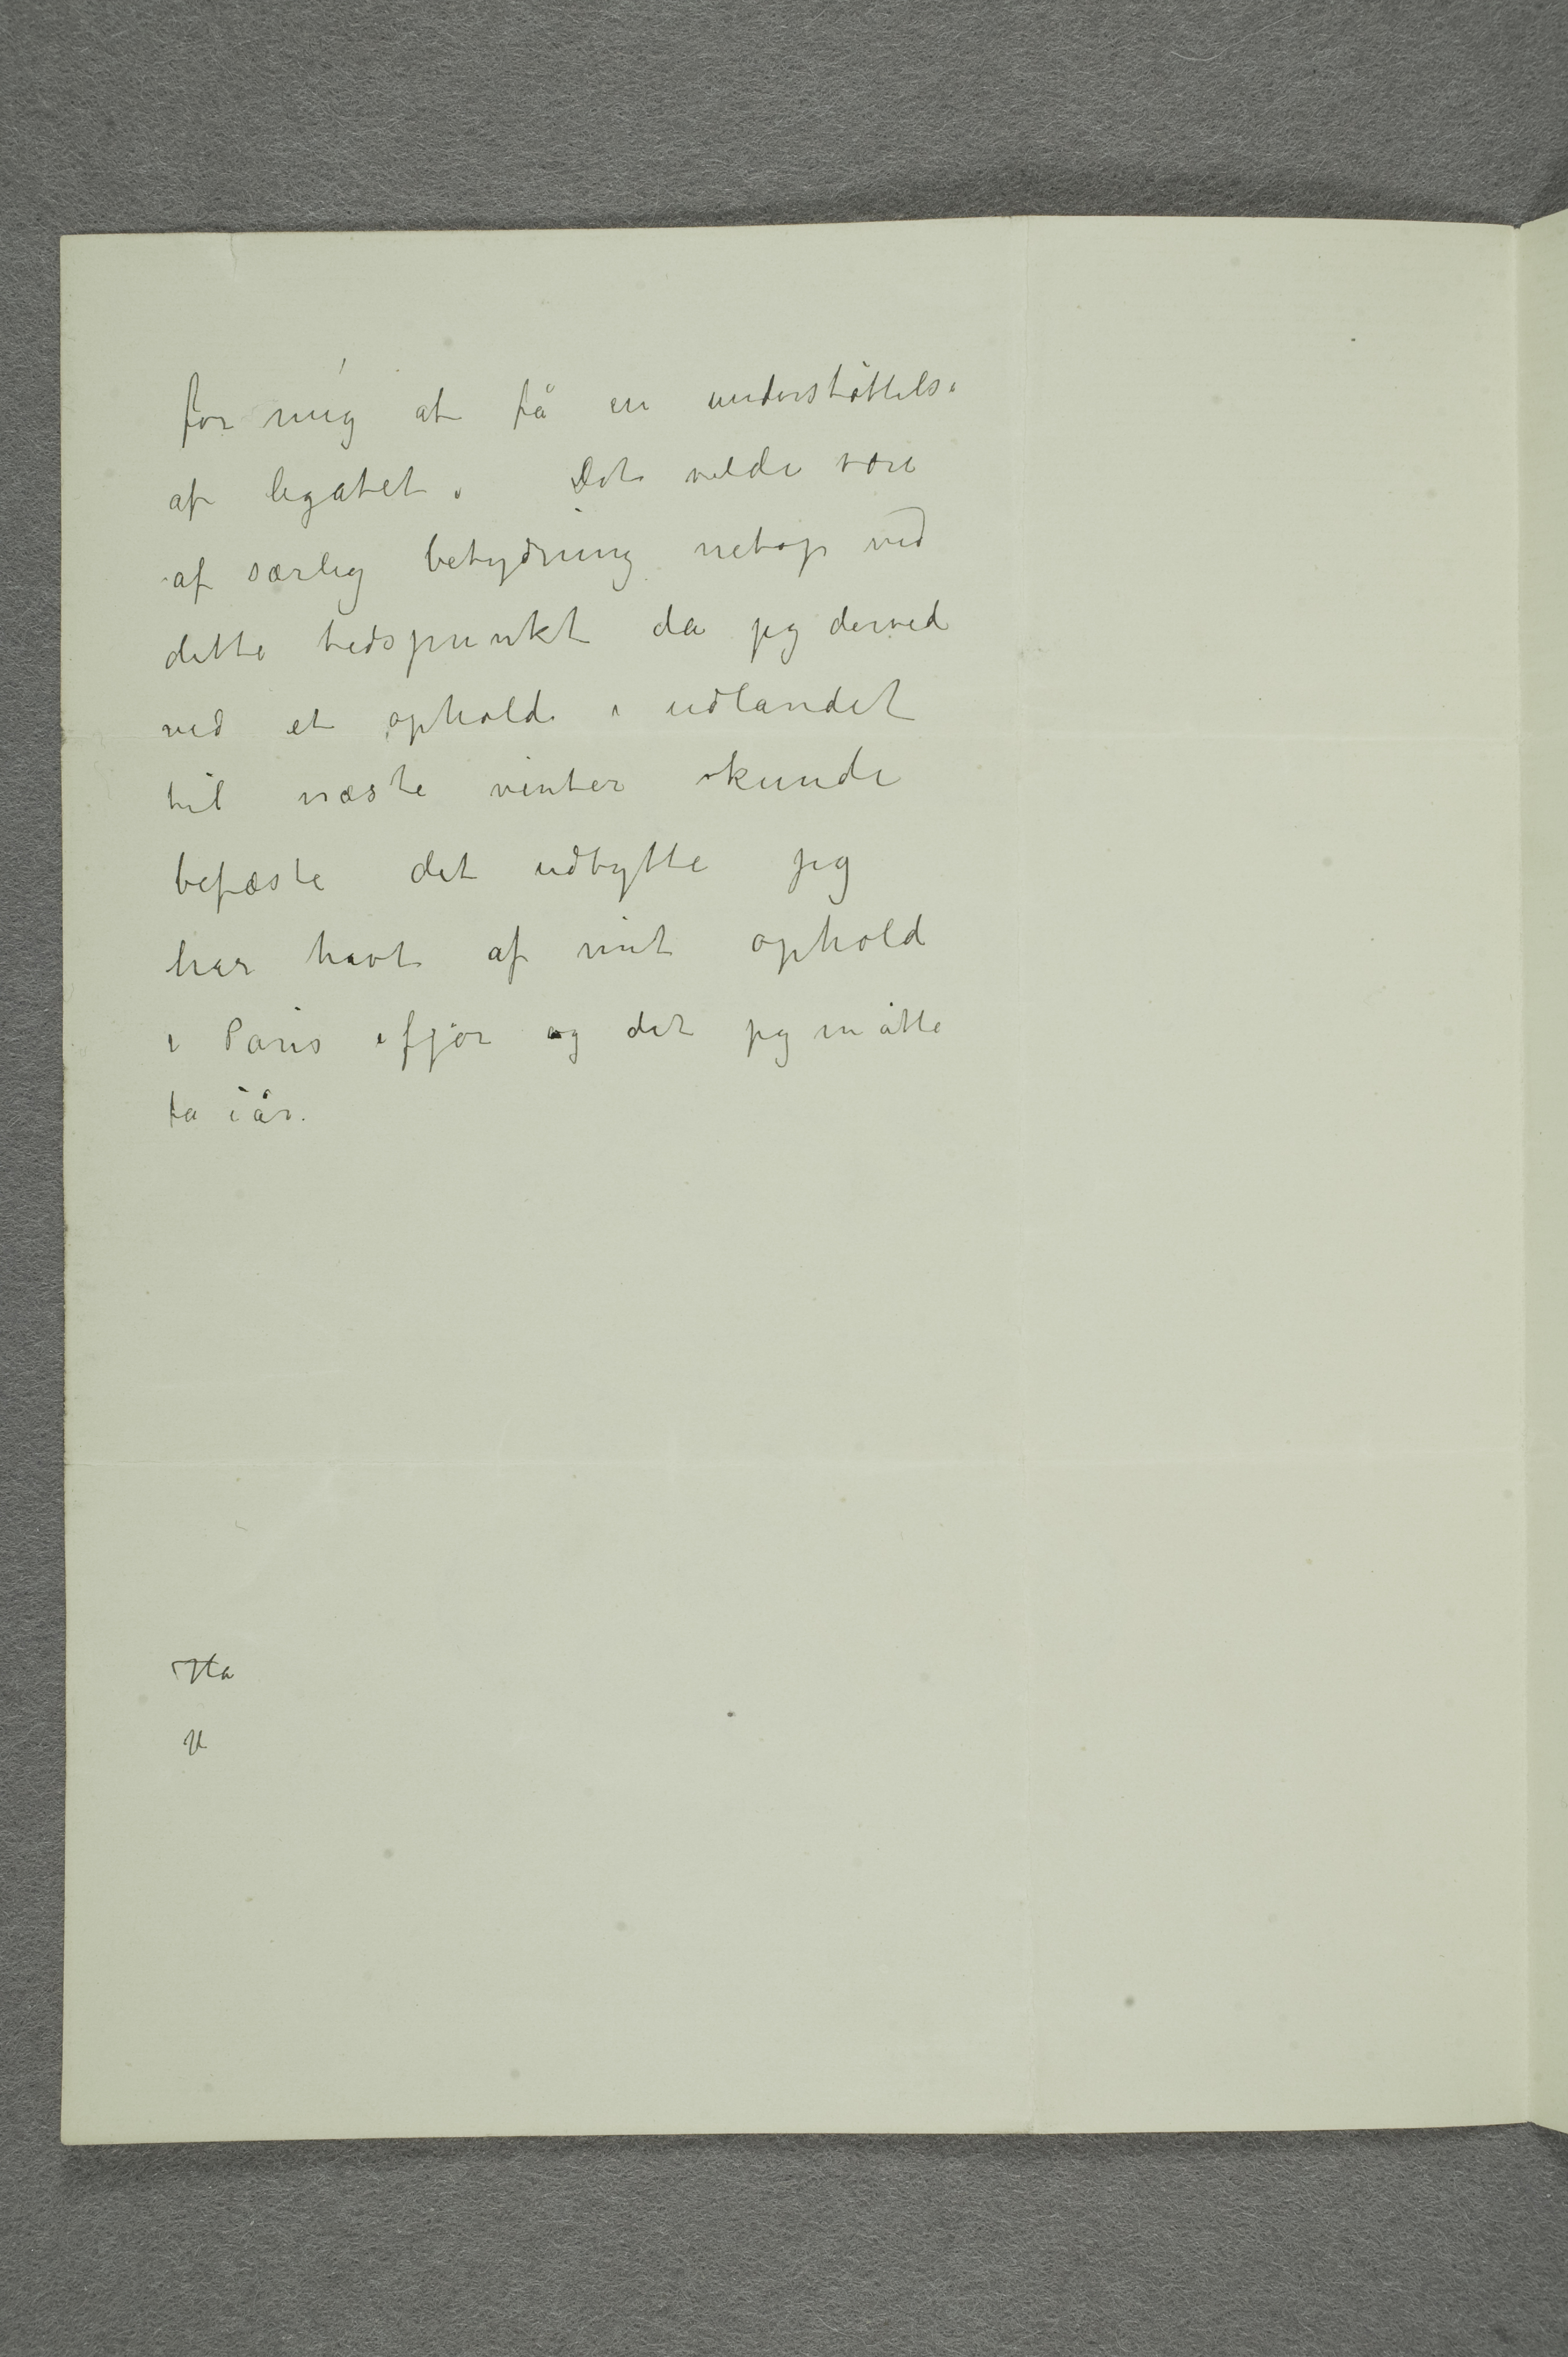 for mig at få en understøttelse
af legatet. Det vilde være
af særlig betydning netop ved
dette tidspunkt da jeg derved
ved et ophold i udlandet
til næste vinter kunde
befæste det udbytte jeg
har havt af mit ophold
i Paris ifjor og det jeg måtte
få iår.
Ha